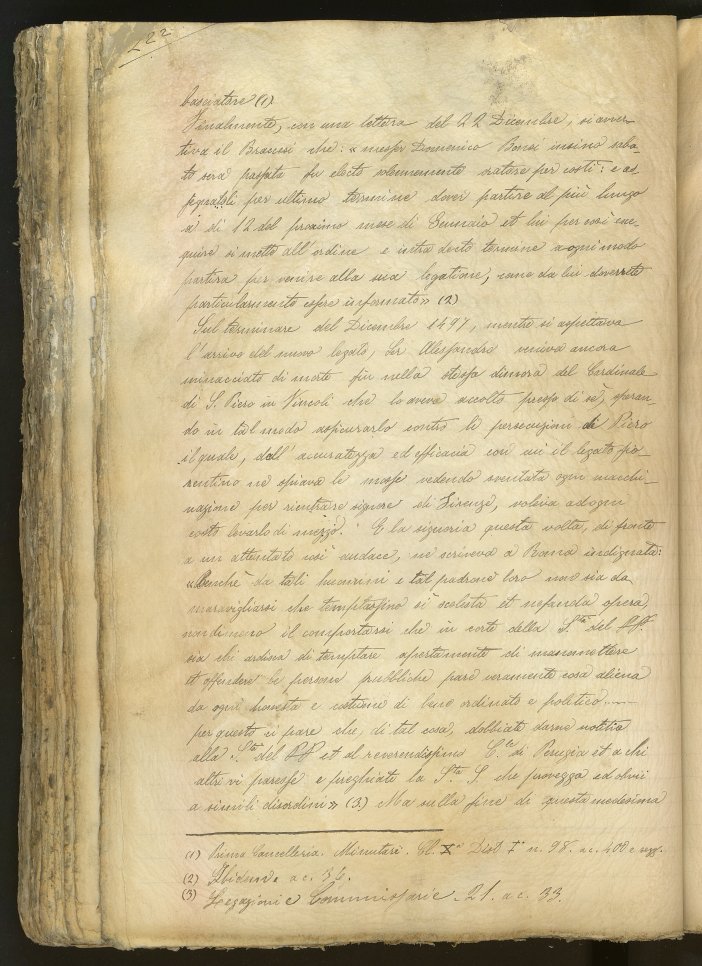 222
basciatore (1)
Finalmente, con una lettera del 22 Dicembre, si avver-
tiva il Bracessi che: « messer Domenico Bonsi insino saba-
to sera passato fu electo solennemente oratore per costì: e as
segnatoli per ultimo termine dover partire al più lungo
a dì 12 del proximo mese di Gennaio et lui per così exe-
quire si mette all'ordine e intra decto termine a ogni modo
partirà per venire alla sua legatione, come da lui doverrete
particularmente essere informato» (2)
Sul terminare del Dicembre 1497, mentre si aspettava
l'arrivo del nuovo legato, Ser Alessandro veniva ancora
minacciato di morte fin nella stessa dimora del Cardinale
di S. Piero in Vincoli che lo aveva accolto presso di sè, speran-
do in tal modo assicurarlo contro le persecuzioni di Piero
il quale, dall'accuratezza ed efficacia con cui il legato fio-
rentino ne spiava le mosse vedendo sventata ogni macchi-
nazione per rientrare signore di Firenze, voleva ad ogni
costo levarlo di mezzo. E la signoria questa volta, di fronte
a un attentato così audace, ne scriveva a Roma indignata:
«Benchè da tali huomini e tal padrone loro non sia da
maravigliarsi che temptassino sì scelesta et nefanda opera,
nondimeno il comportarsi che in corte della S.tà del PP.
sia chi ardisca di temptare apertamente di manomettere
et offendere le persone pubbliche pare veramente cosa aliena
da ogni honesta e costume di bene ordinato e politico......
per questo ci pare che, di tal cosa, dobbiate darne notitia
alla S.tà del PP et al reverendissimo C.le di Perugia et a chi
altri vi paresse e preghiate la S.tà S. che provegga ed ovvii
a simili disordini» (3) Ma sulla fine di questa medesima
(1) Prima Cancelleria. Minutari. Cl. X.a Dist. I.a n. 98. ac. 400 e segg.
(2) Ibidem. ac. 36.
(3) Legazioni e Commissarie. 21. ac. 33.